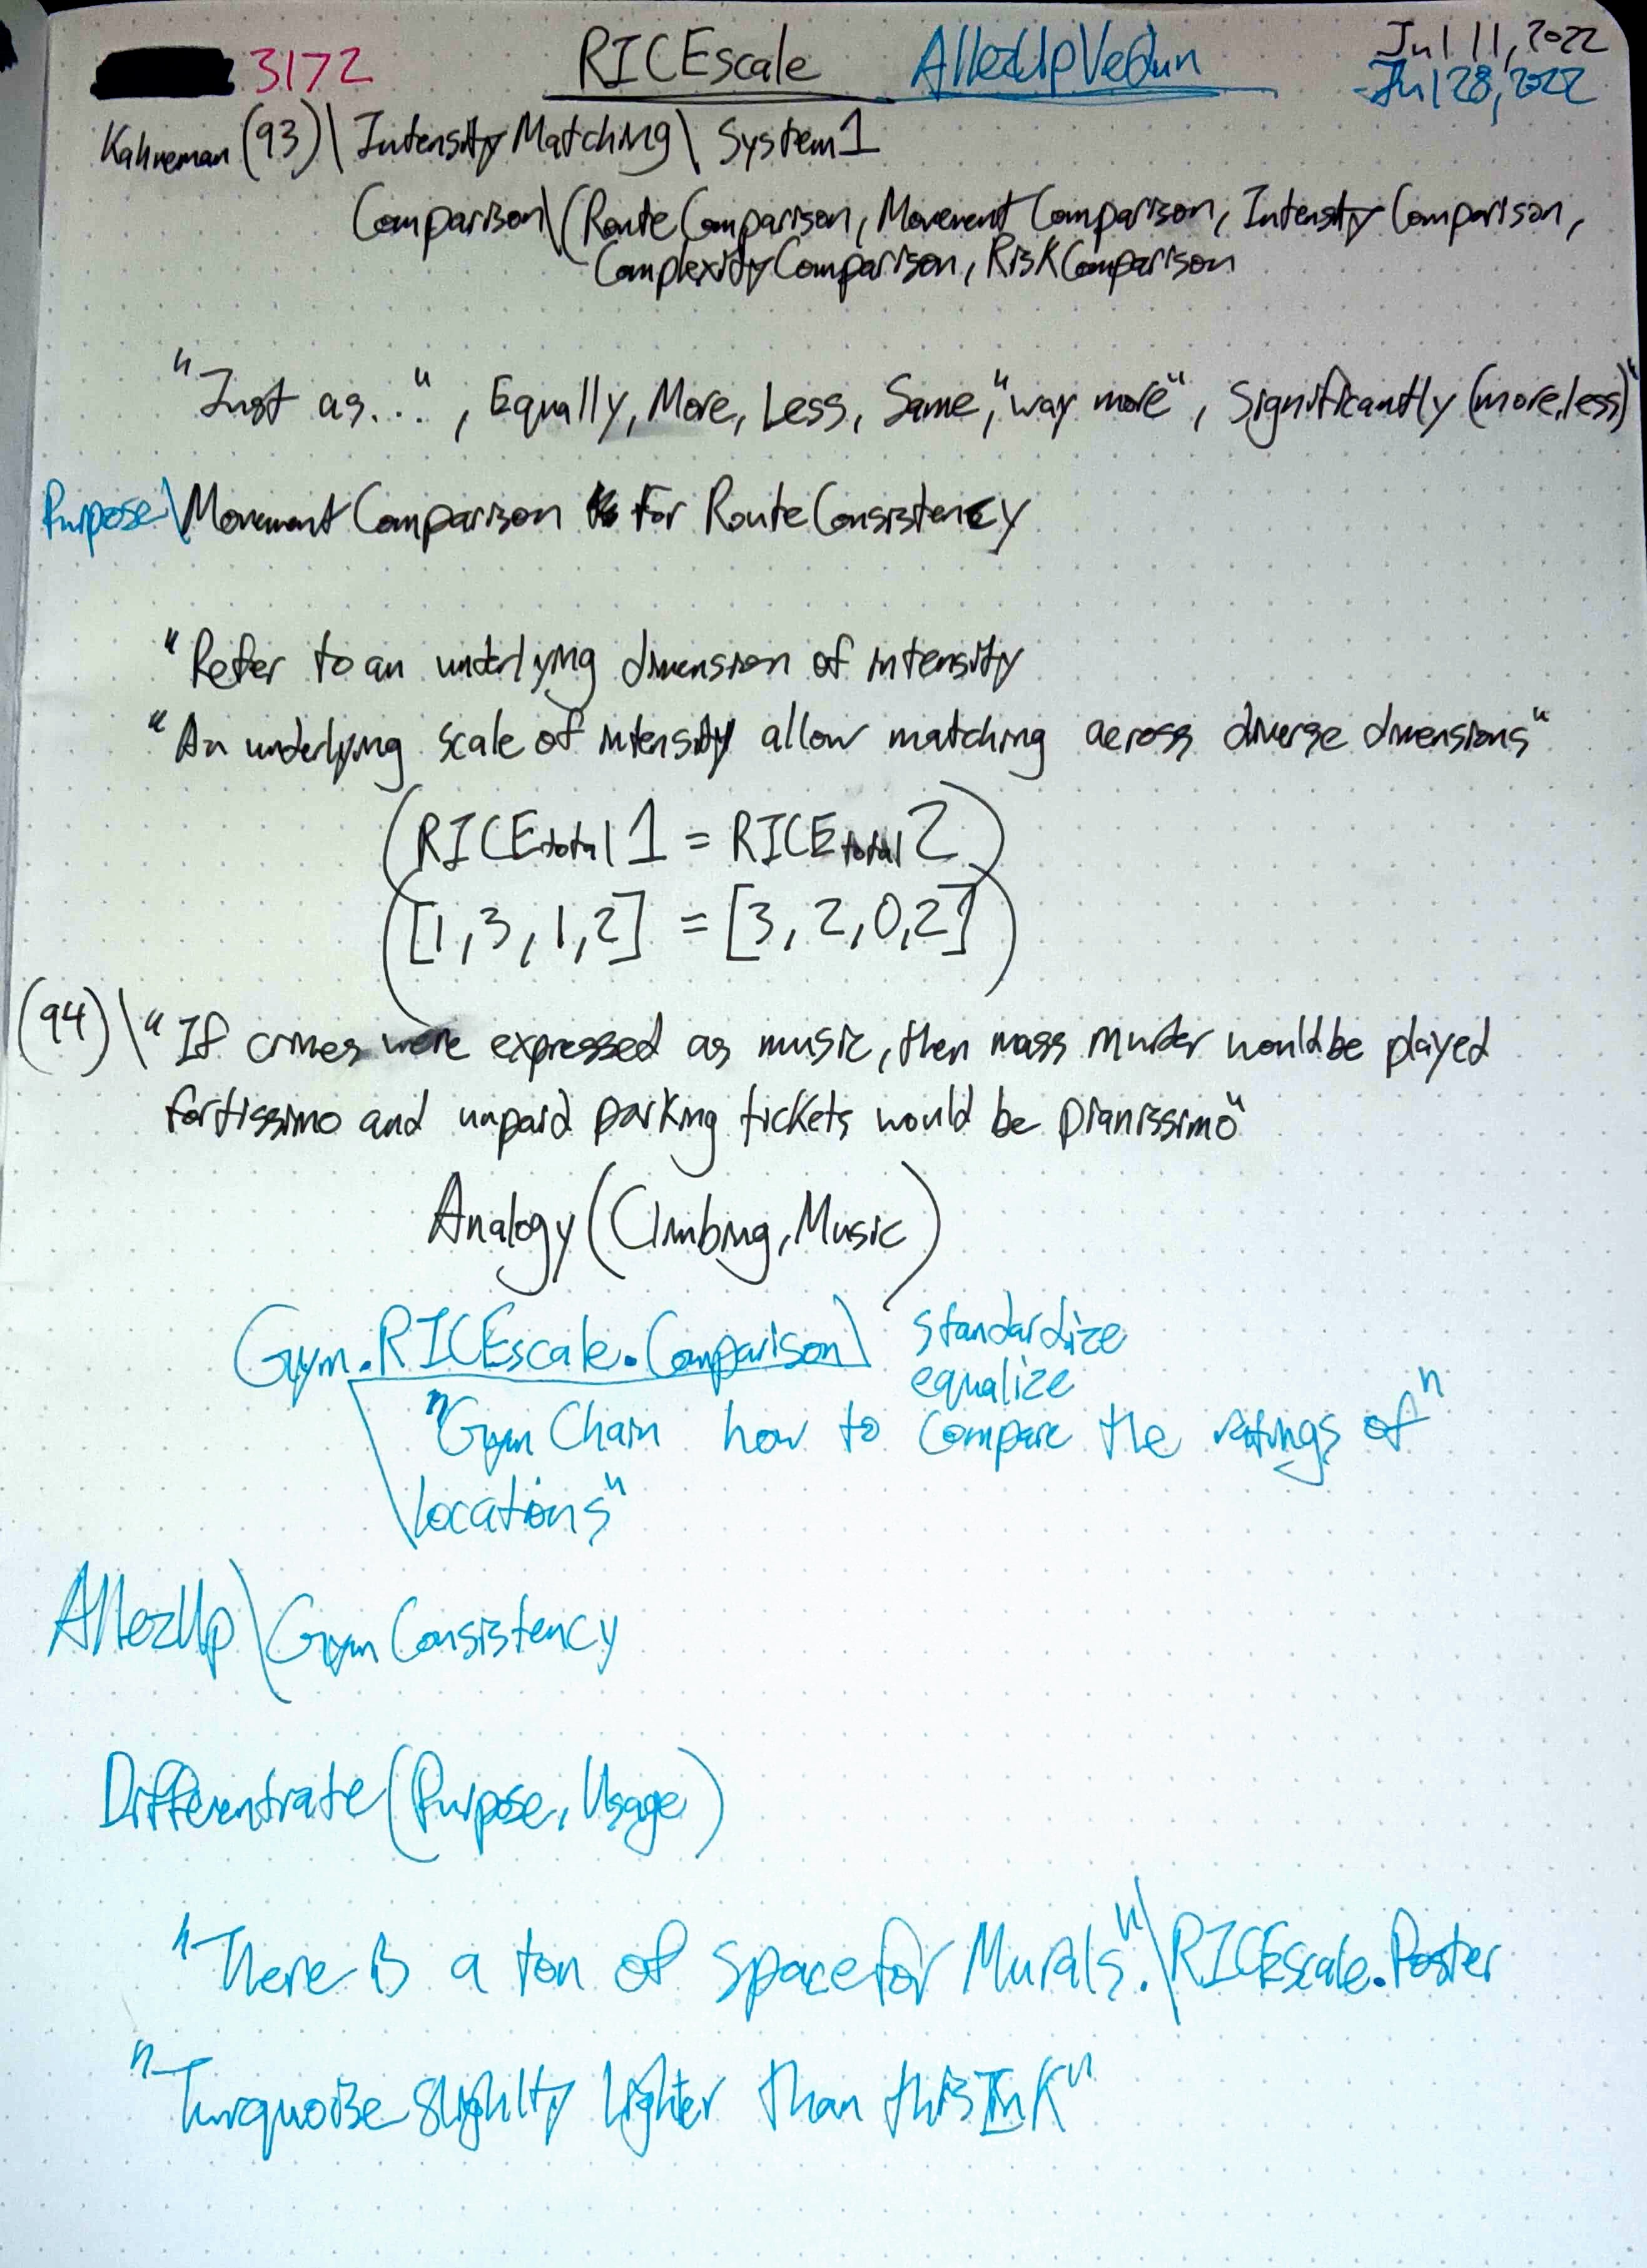 3172 RICEscale AllezUpVerdun Jul 11, 2022
Jul 28, 2022
Kahneman (93)\IntensityMatching\System1
Comparison\(RouteComparison, MovementComparison, IntensityComparison,
ComplexityComparison, RiskComparison
"Just as...", Equally, More, Less, Same, "way more", Significantly (more,less)"
Purpose\MovementComparison For RouteConsistency
"Refer to an underlying dimension of intensity
"An underlying scale of intensity allow matching across diverse dimensions"
(RICEtotal1 = RICEtotal2)
([1,3,1,2] = [3,2,0,2])
(94)\"If crimes were expressed as music, then mass murder would be played
fortissimo and unpaid parking tickets would be pianissimo"
Analogy(Climbing, Music)
Gym.RICEscale.Comparison\ standardize
equalize
"Gym Chain how to compare the ratings of"
\locations"
AllezUp\GymConsistency
Differentiate(Purpose, Usage)
"There is a ton of space for Murals."\RICEscale.Poster
"Turquoise slighlty lighter than this Ink"